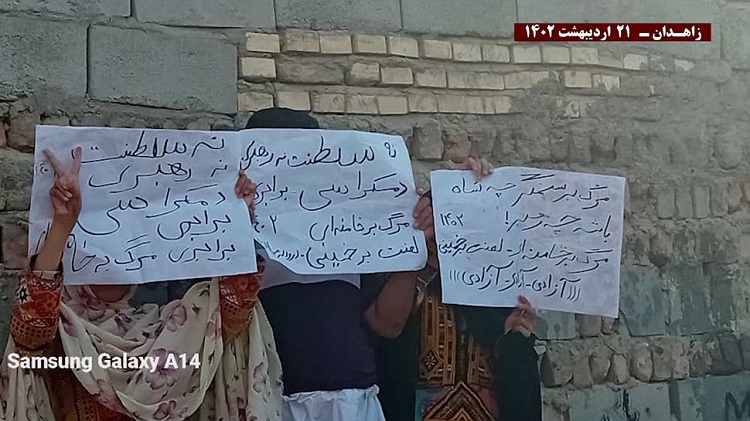 زاهـدان ـ ۲۱ اردیبهشت ۱۴۰۲
نه سلطنت
نه رهبری
دمکراسی
برابری
مرگ به
نه سلطنت نه رهبری
دمکراسی برابری
مرگ بر خامنه‌ای ۱۴۰۲
لعنت بر خمینی
مرگ بر ستمگر چه شاه
باشه چه رهبر! ۱۴۰۲
مرگ بر خامنه‌ای - لعنت بر خمینی
آزادی - آزادی - آزادی!!!
Samsung Galaxy A14